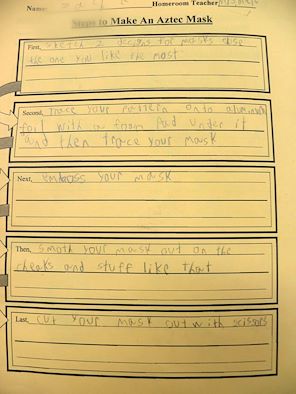 Name: Homeroom Teacher
Steps to Make An Aztec Mask
First, sketch 2 designs for masks chose
the one you like the most
Second, Trace your pattern onto aluminum
foil with a foam Pad under it
and then trace your mask
Next, emboss your mask
Then, smoth your mask out on the
cheaks and stuff like that
Last, cut your mask out with scissors